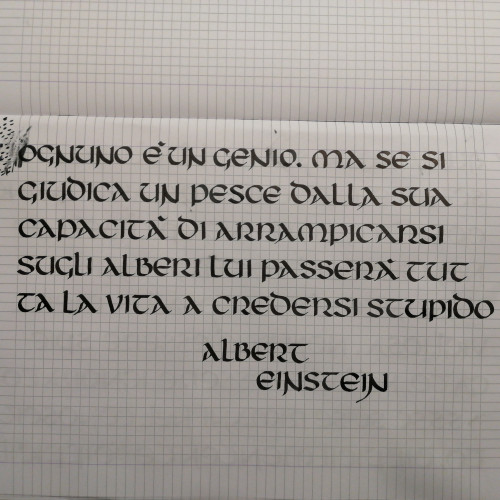 OGNUNO E' UN GENIO. MA SE SI
GIUDICA UN PESCE DALLA SUA
CAPACITA' DI ARRAMPICARSI
SUGLI ALBERI LUI PASSERA' TUT
TA LA VITA A CREDERSI STUPIDO
ALBERT
EINSTEIN